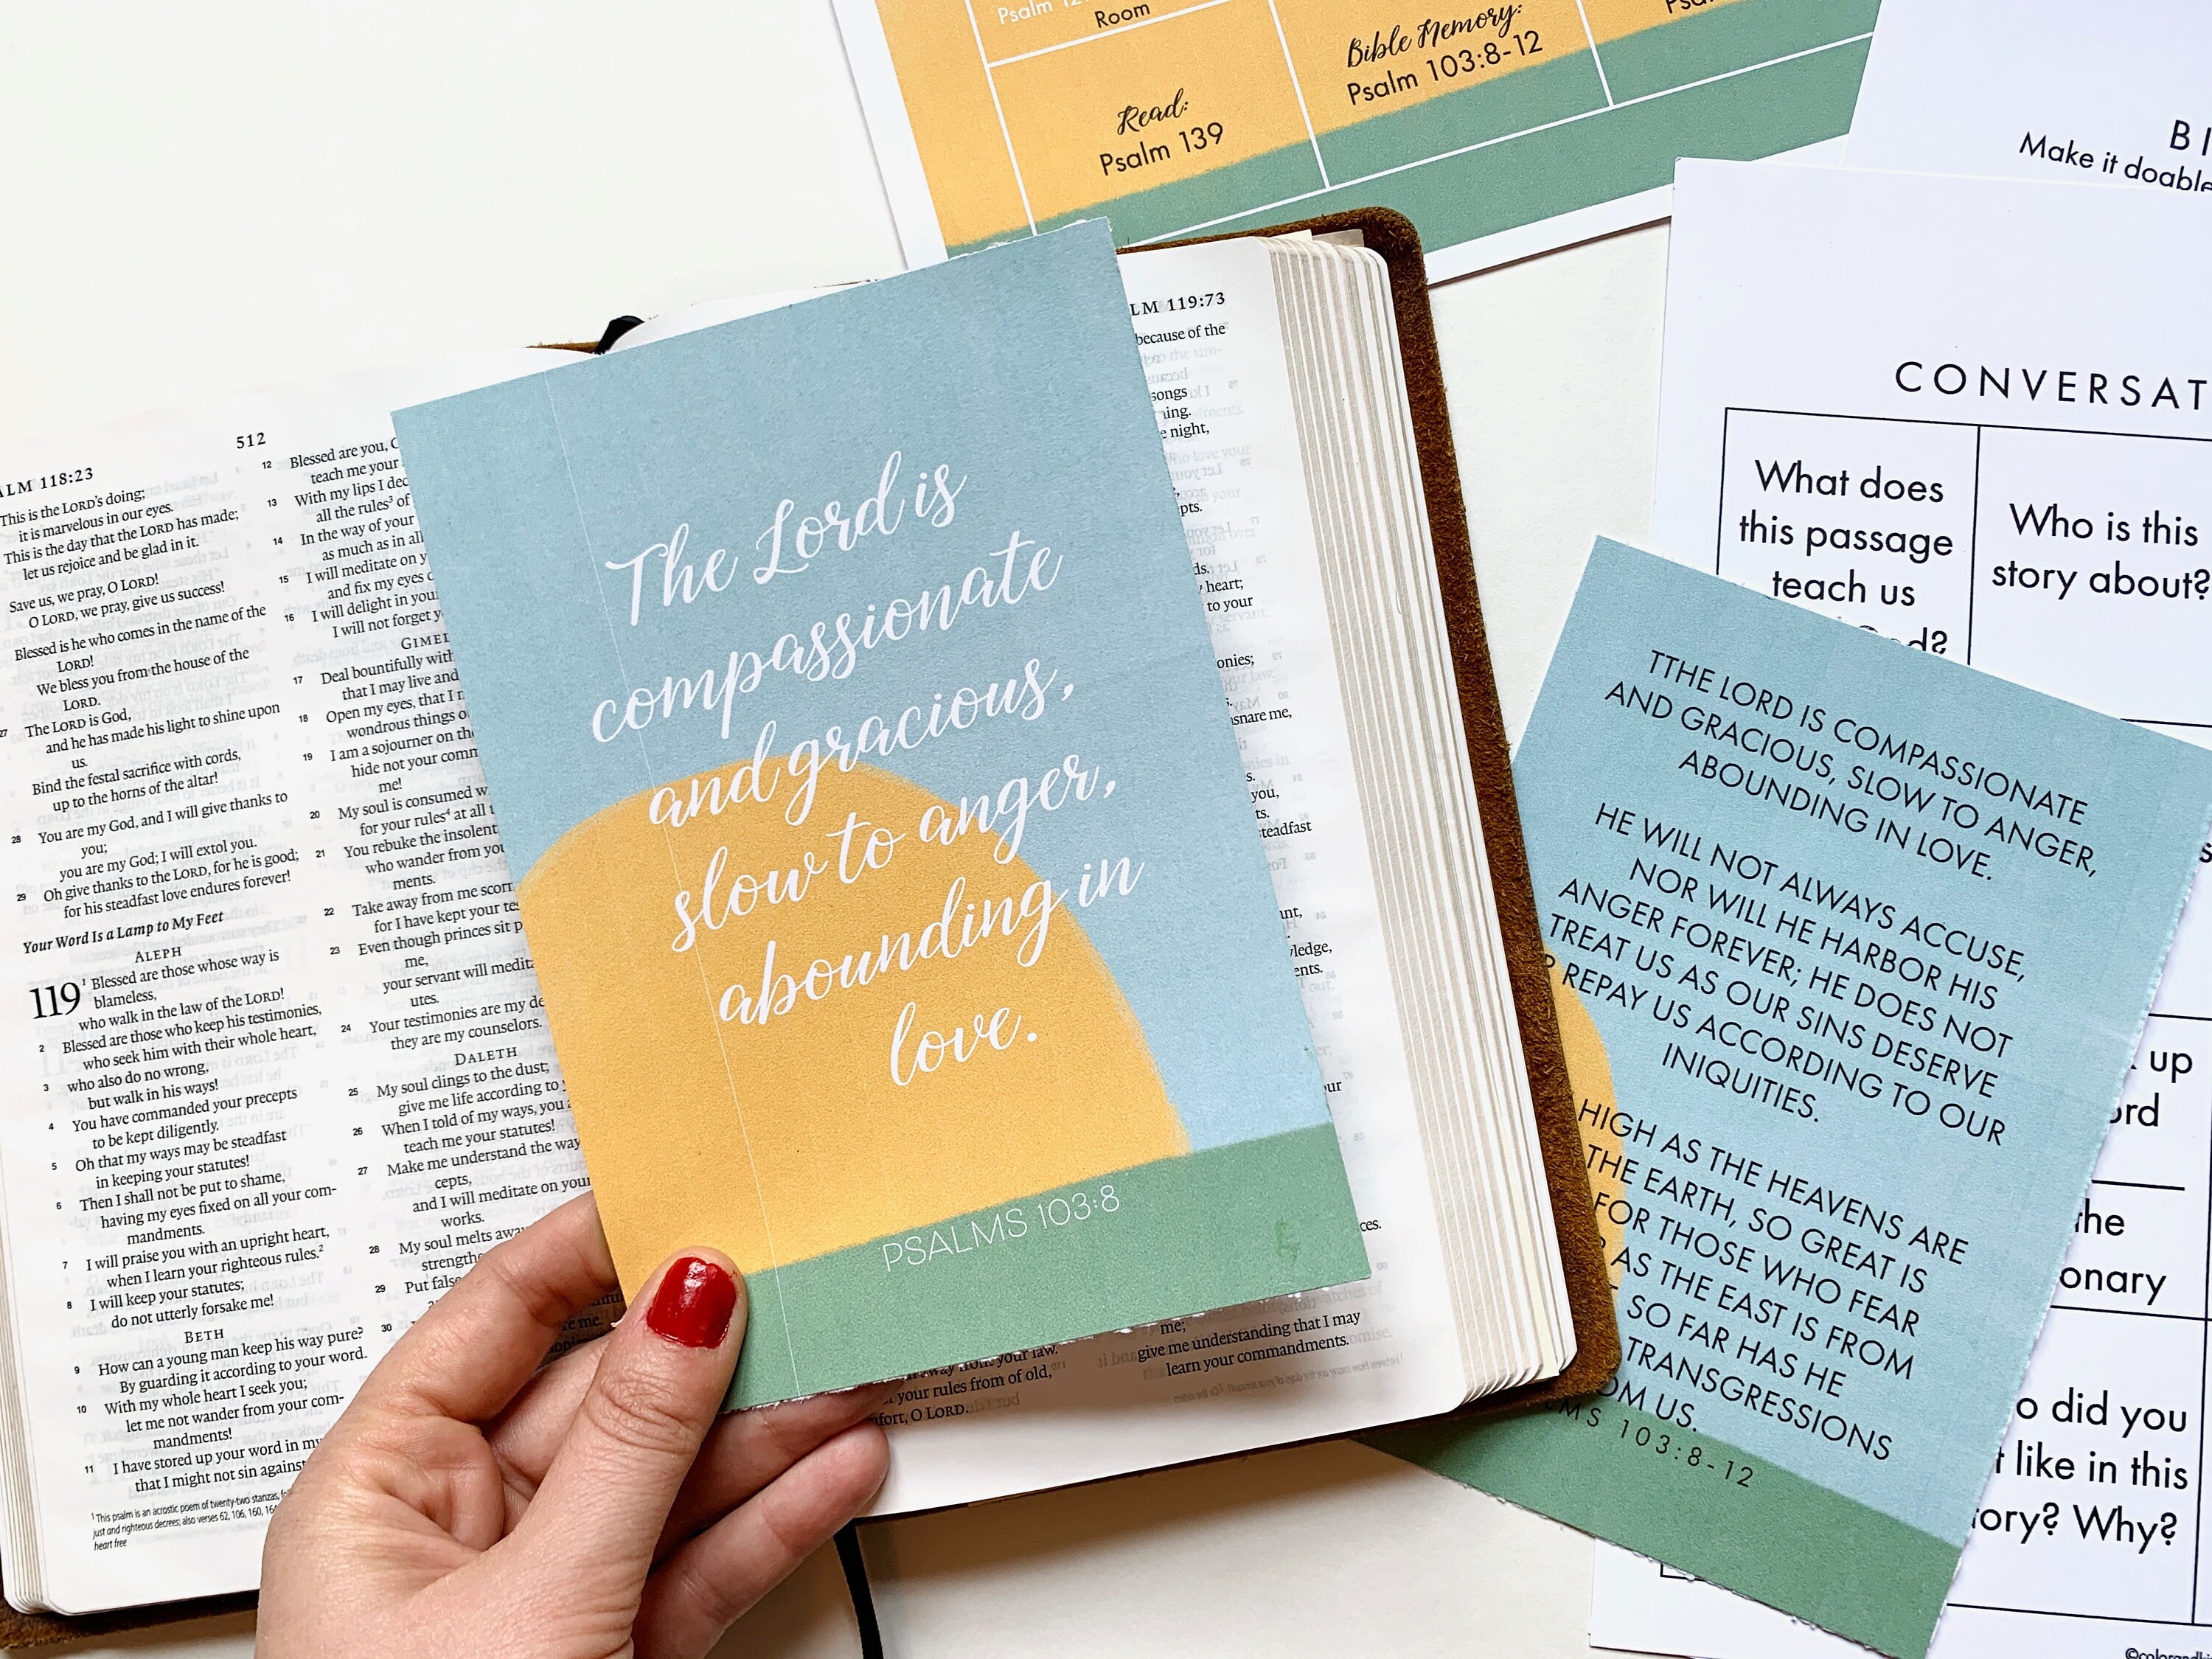 Room
Bible Memory:
Psalm 103:8-12
Read:
Psalm 139
Make it doable
CONVERSAT
What does
this passage
teach us
Who is this
story about?
The Lord is
compassionate
and gracious,
slow to anger,
abounding in
love.
PSALMS 103:8
TTHE LORD IS COMPASSIONATE
AND GRACIOUS, SLOW TO ANGER,
ABOUNDING IN LOVE.
HE WILL NOT ALWAYS ACCUSE,
NOR WILL HE HARBOR HIS
ANGER FOREVER; HE DOES NOT
TREAT US AS OUR SINS DESERVE
REPAY US ACCORDING TO OUR
INIQUITIES.
HIGH AS THE HEAVENS ARE
THE EARTH, SO GREAT IS
FOR THOSE WHO FEAR
AS THE EAST IS FROM
SO FAR HAS HE
TRANSGRESSIONS
OM US.
103:8-12
up
the
onary
did you
like in this
ory? Why?
512
ALM 118:23
This is the LORD's doing;
it is marvelous in our eyes.
This is the day that the LORD has made;
let us rejoice and be glad in it.
Save us, we pray, O LORD!
O LORD, we pray, give us success!
Blessed is he who comes in the name of the
LORD!
We bless you from the house of the
LORD.
27 The LORD is God,
and he has made his light to shine upon
us.
Bind the festal sacrifice with cords,
up to the horns of the altar!
28 You are my God, and I will give thanks to
you;
you are my God; I will extol you.
29 Oh give thanks to the LORD, for he is good;
for his steadfast love endures forever!
Your Word Is a Lamp to My Feet
ALEPH
119 1 Blessed are those whose way is
blameless,
who walk in the law of the LORD!
2 Blessed are those who keep his testimonies,
who seek him with their whole heart,
3 who also do no wrong,
but walk in his ways!
4 You have commanded your precepts
to be kept diligently.
5 Oh that my ways may be steadfast
in keeping your statutes!
6 Then I shall not be put to shame,
having my eyes fixed on all your com-
mandments.
7 I will praise you with an upright heart,
when I learn your righteous rules.2
8 I will keep your statutes;
do not utterly forsake me!
BETH
9 How can a young man keep his way pure?
By guarding it according to your word.
10 With my whole heart I seek you;
let me not wander from your com-
mandments!
11 I have stored up your word in my
that I might not sin against
1 This psalm is an acrostic poem of twenty-two stanzas,
just and righteous decrees; also verses 62, 106, 160,
heart free
12 Blessed are you,
teach me your
13 With my lips I dec
all the rules3 of
14 In the way of your
as much as in all
15 I will meditate on y
and fix my eyes
16 I will delight in your
I will not forget y
GIMEL
17 Deal bountifully with
that I may live and
18 Open my eyes, that I
wondrous things
19 I am a sojourner on the
hide not your comm
me!
20 My soul is consumed w
for your rules4 at all
21 You rebuke the insolent
who wander from you
ments.
22 Take away from me scorn
for I have kept your tes
23 Even though princes sit p
me,
your servant will medita
utes.
24 Your testimonies are my de
they are my counselors.
DALETH
25 My soul clings to the dust;
give me life according to
26 When I told of my ways, you
teach me your statutes!
27 Make me understand the way
cepts,
and I will meditate on your
works.
28 My soul melts away
strengthe
29 Put false
30
LM 119:73
because of the
songs
ning.
night,
pts.
heart;
to your
onies;
snare me,
you,
steadfast
ledge,
ents.
ces.
your law.
your rules from of old,
fort, O LORD.
me;
give me understanding that I may
learn your commandments.